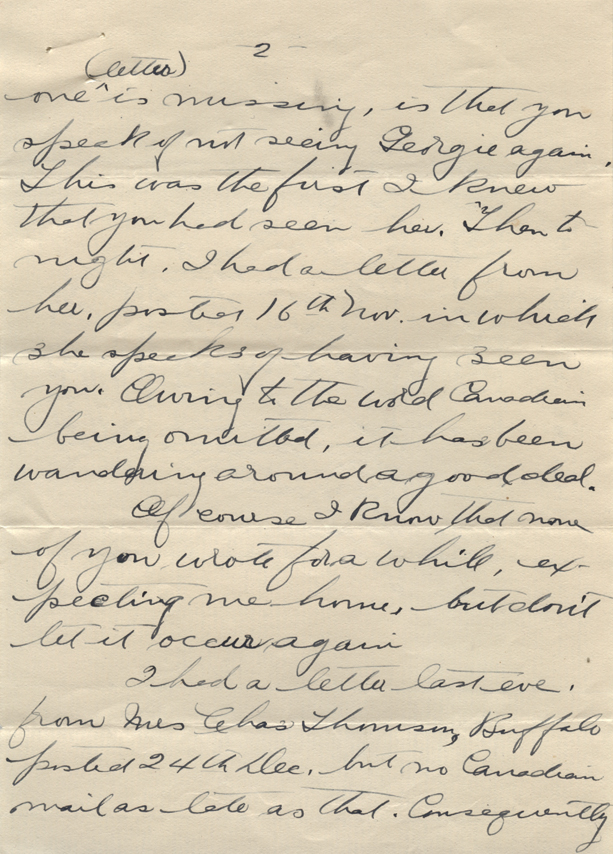 2
(letter)
one ^ is missing, is that you
speak of not seeing Georgie again.
This was the first I knew
that you had seen her. Then to
night, I had a letter from
her, posted 16th Nov. in which
she speaks of having seen
you. Owing to the word Canadian
being omitted, it has been
wandering around a good deal.
Of course I know that none
of you wrote for a while, ex-
pecting me home, but don't
let it occur again
I had a letter last eve.
from Mrs Chas Thomson, Buffalo
posted 24th Dec. but no Canadian
mail as late as that. Consequently